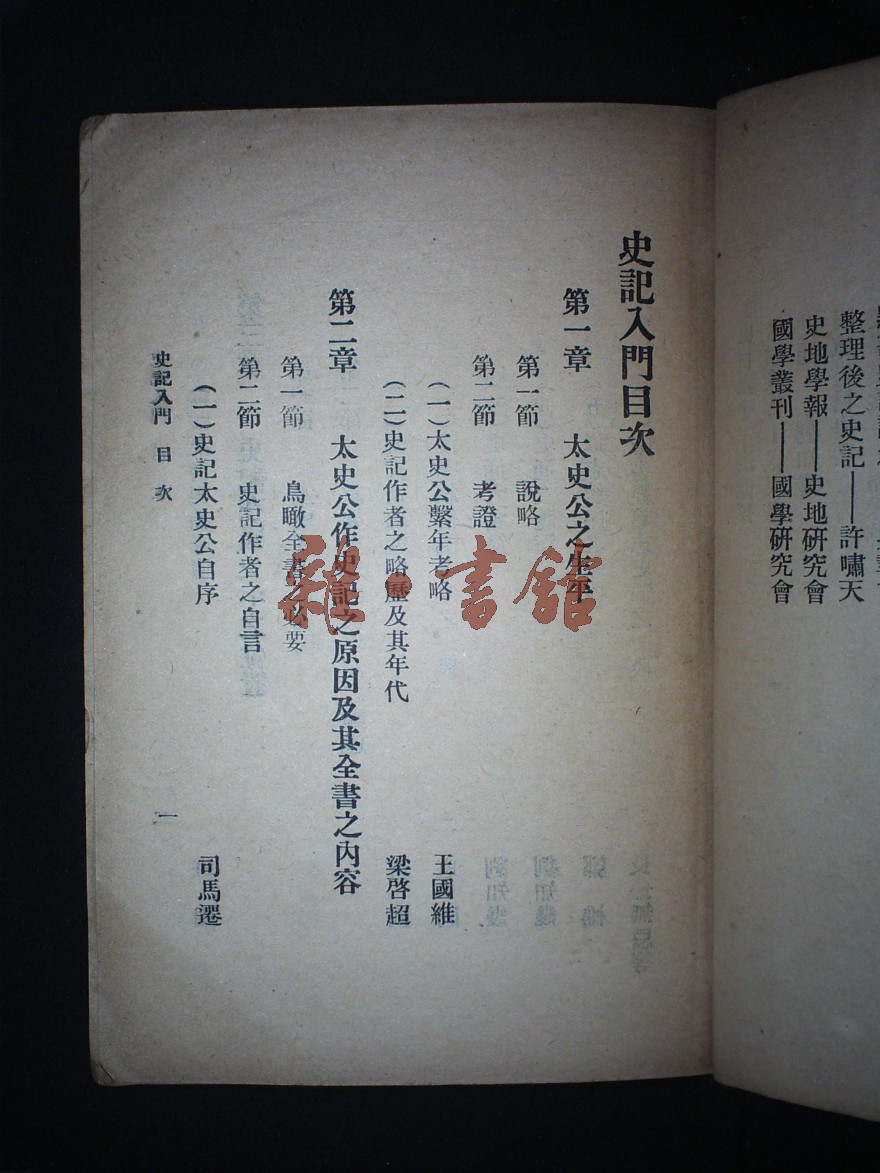 整理後之史記——許嘯天
史地學報——史地硏究會
國學叢刊——國學硏究會
史記入門目次
第一章 太史公之生平
第一節 說略
第二節 考證
(一)太史公繫年考略 王國維
(二)史記作者之略歷及其年代 梁啓超
第二章 太史公作史記之原因及其全書之內容
第一節 鳥瞰全書之必要
第二節 史記作者之自言
(一)史記太史公自序 司馬遷
史記入門 目次 一
雜·書館